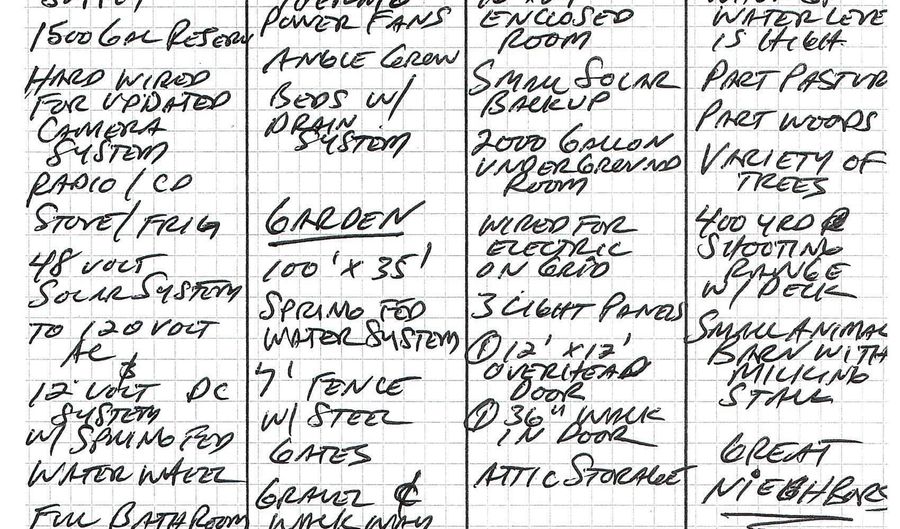 1500 GAL RESERV
HARD WIRED
FOR UPDATED
CAMERA
SYSTEM
RADIO / CD
STOVE / FRIG
48 VOLT
SOLAR SYSTEM
TO 120 VOLT
AC &
12 VOLT DC
SYSTEM
W/ SPRING FED
WATER WHEEL
FULL BATHROOM
POWER FANS
ANGLE GROW
BEDS W/
DRAIN
SYSTEM
GARDEN
100' X 35'
SPRING FED
WATER SYSTEM
7' FENCE
W/ STEEL
GATES
GRAVEL &
WALKWAY
ENCLOSED
ROOM
SMALL SOLAR
BACKUP
2000 GALLON
UNDERGROUND
ROOM
WIRED FOR
ELECTRIC
ON GRID
3 LIGHT PANELS
① 12' X 12'
OVERHEAD
DOOR
① 36" WALK
IN DOOR
ATTIC STORAGE
WATER LEVE
IS HIGH
PART PASTUR
PART WOODS
VARIETY OF
TREES
400 YRD
SHOOTING
RANGE
W/ DECK
SMALL ANIMAL
BARN WITH
MILKING
STALL
GREAT
NIEGHBORS